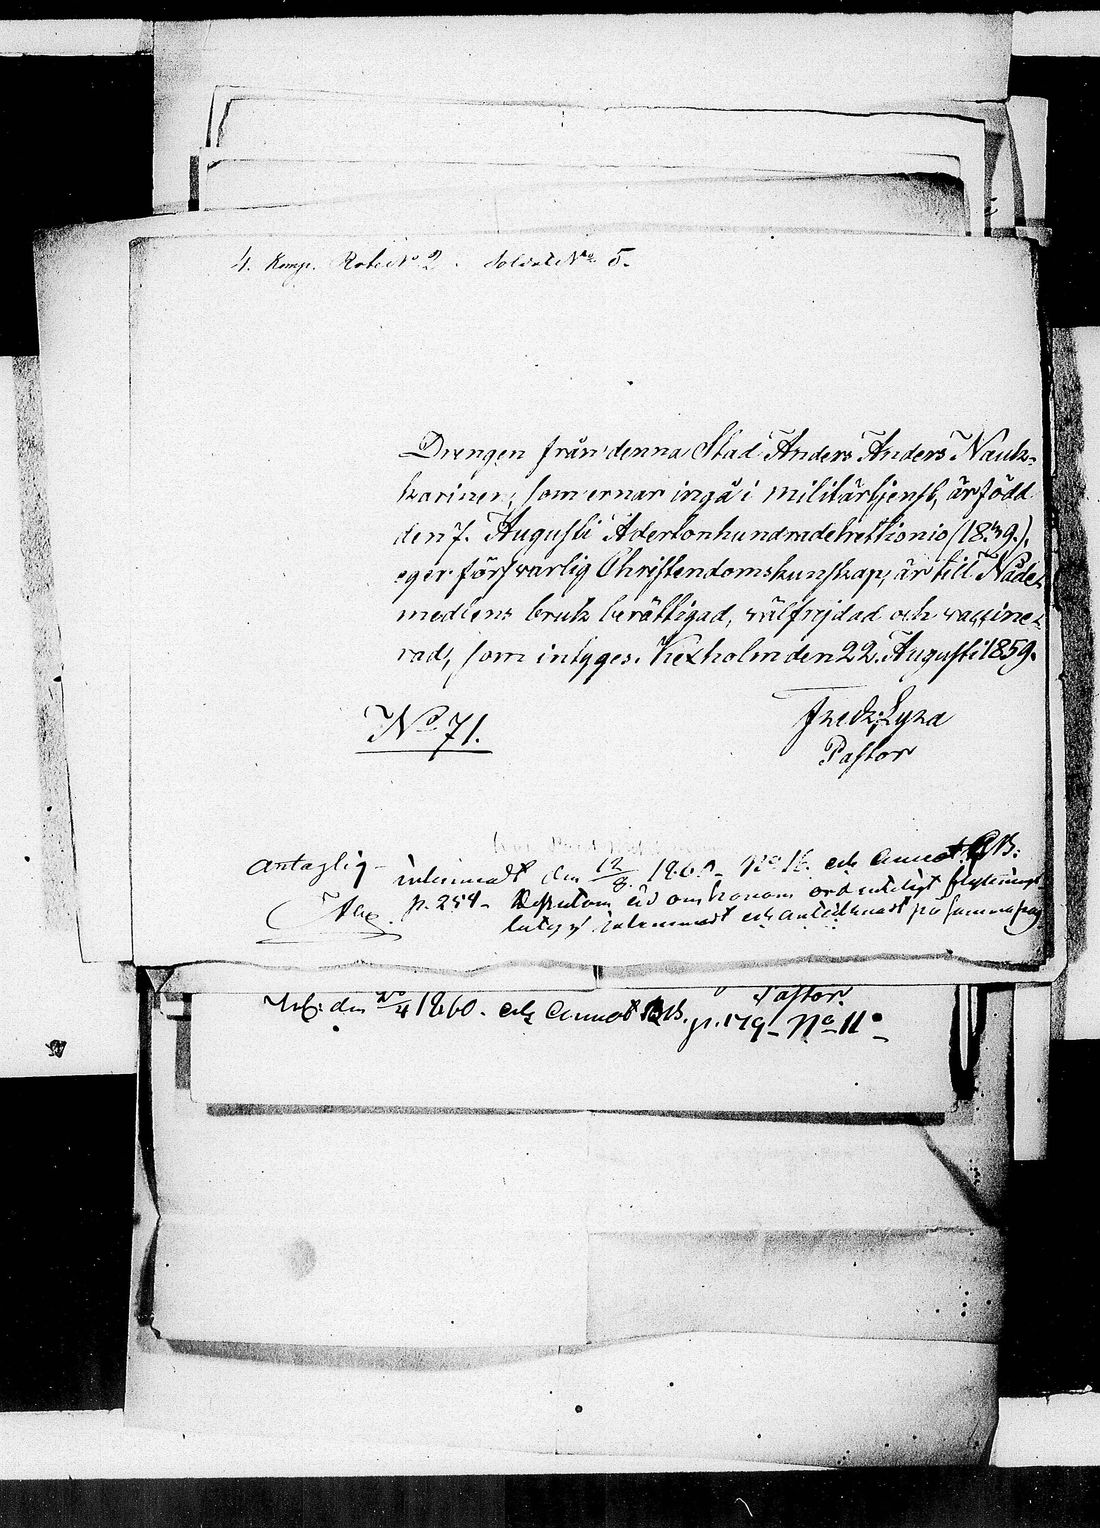 4. Komp. Rote No 2. Soldat No 5.
Drengen från denna Stad Anders Anders Nauk-
karinen, som ernar ingå i militärtjenst, är född
den 7. Augusti Adertonhundradetrettionio (1839.),
eger försvarlig Christendomskunskap, är till Nåde-
medlens bruk berättigad, välfrejdad och vaccine-
rad, som intygges. Kexholm den 22. Augusti 1859.
No 71.
Fredr. Lyra
Pastor
Antaglig
inlemnadt den 12/8 1860. No 16. och Annot.
p. 254. Dessutom om honom ordenteligt
inlemnadt och antecknadt på samma
Pastor
den 20/4 1860. och Annot
p. 179. No 11.